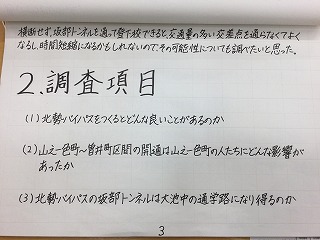 横断せず、坂部トンネルを通って登下校できると、交通量の多い交差点を通らなくてよく
なるし、時間短縮になるかもしれないので、その可能性についても調べたいと思った。
2.調査項目
(1) 北勢バイパスをつくるとどんな良いことがあるのか
(2) 山之一色町~曽井町区間の開通は山之一色町の人たちにどんな影響が
あったか
(3) 北勢バイパスの坂部トンネルは大池中の通学路になり得るのか
3